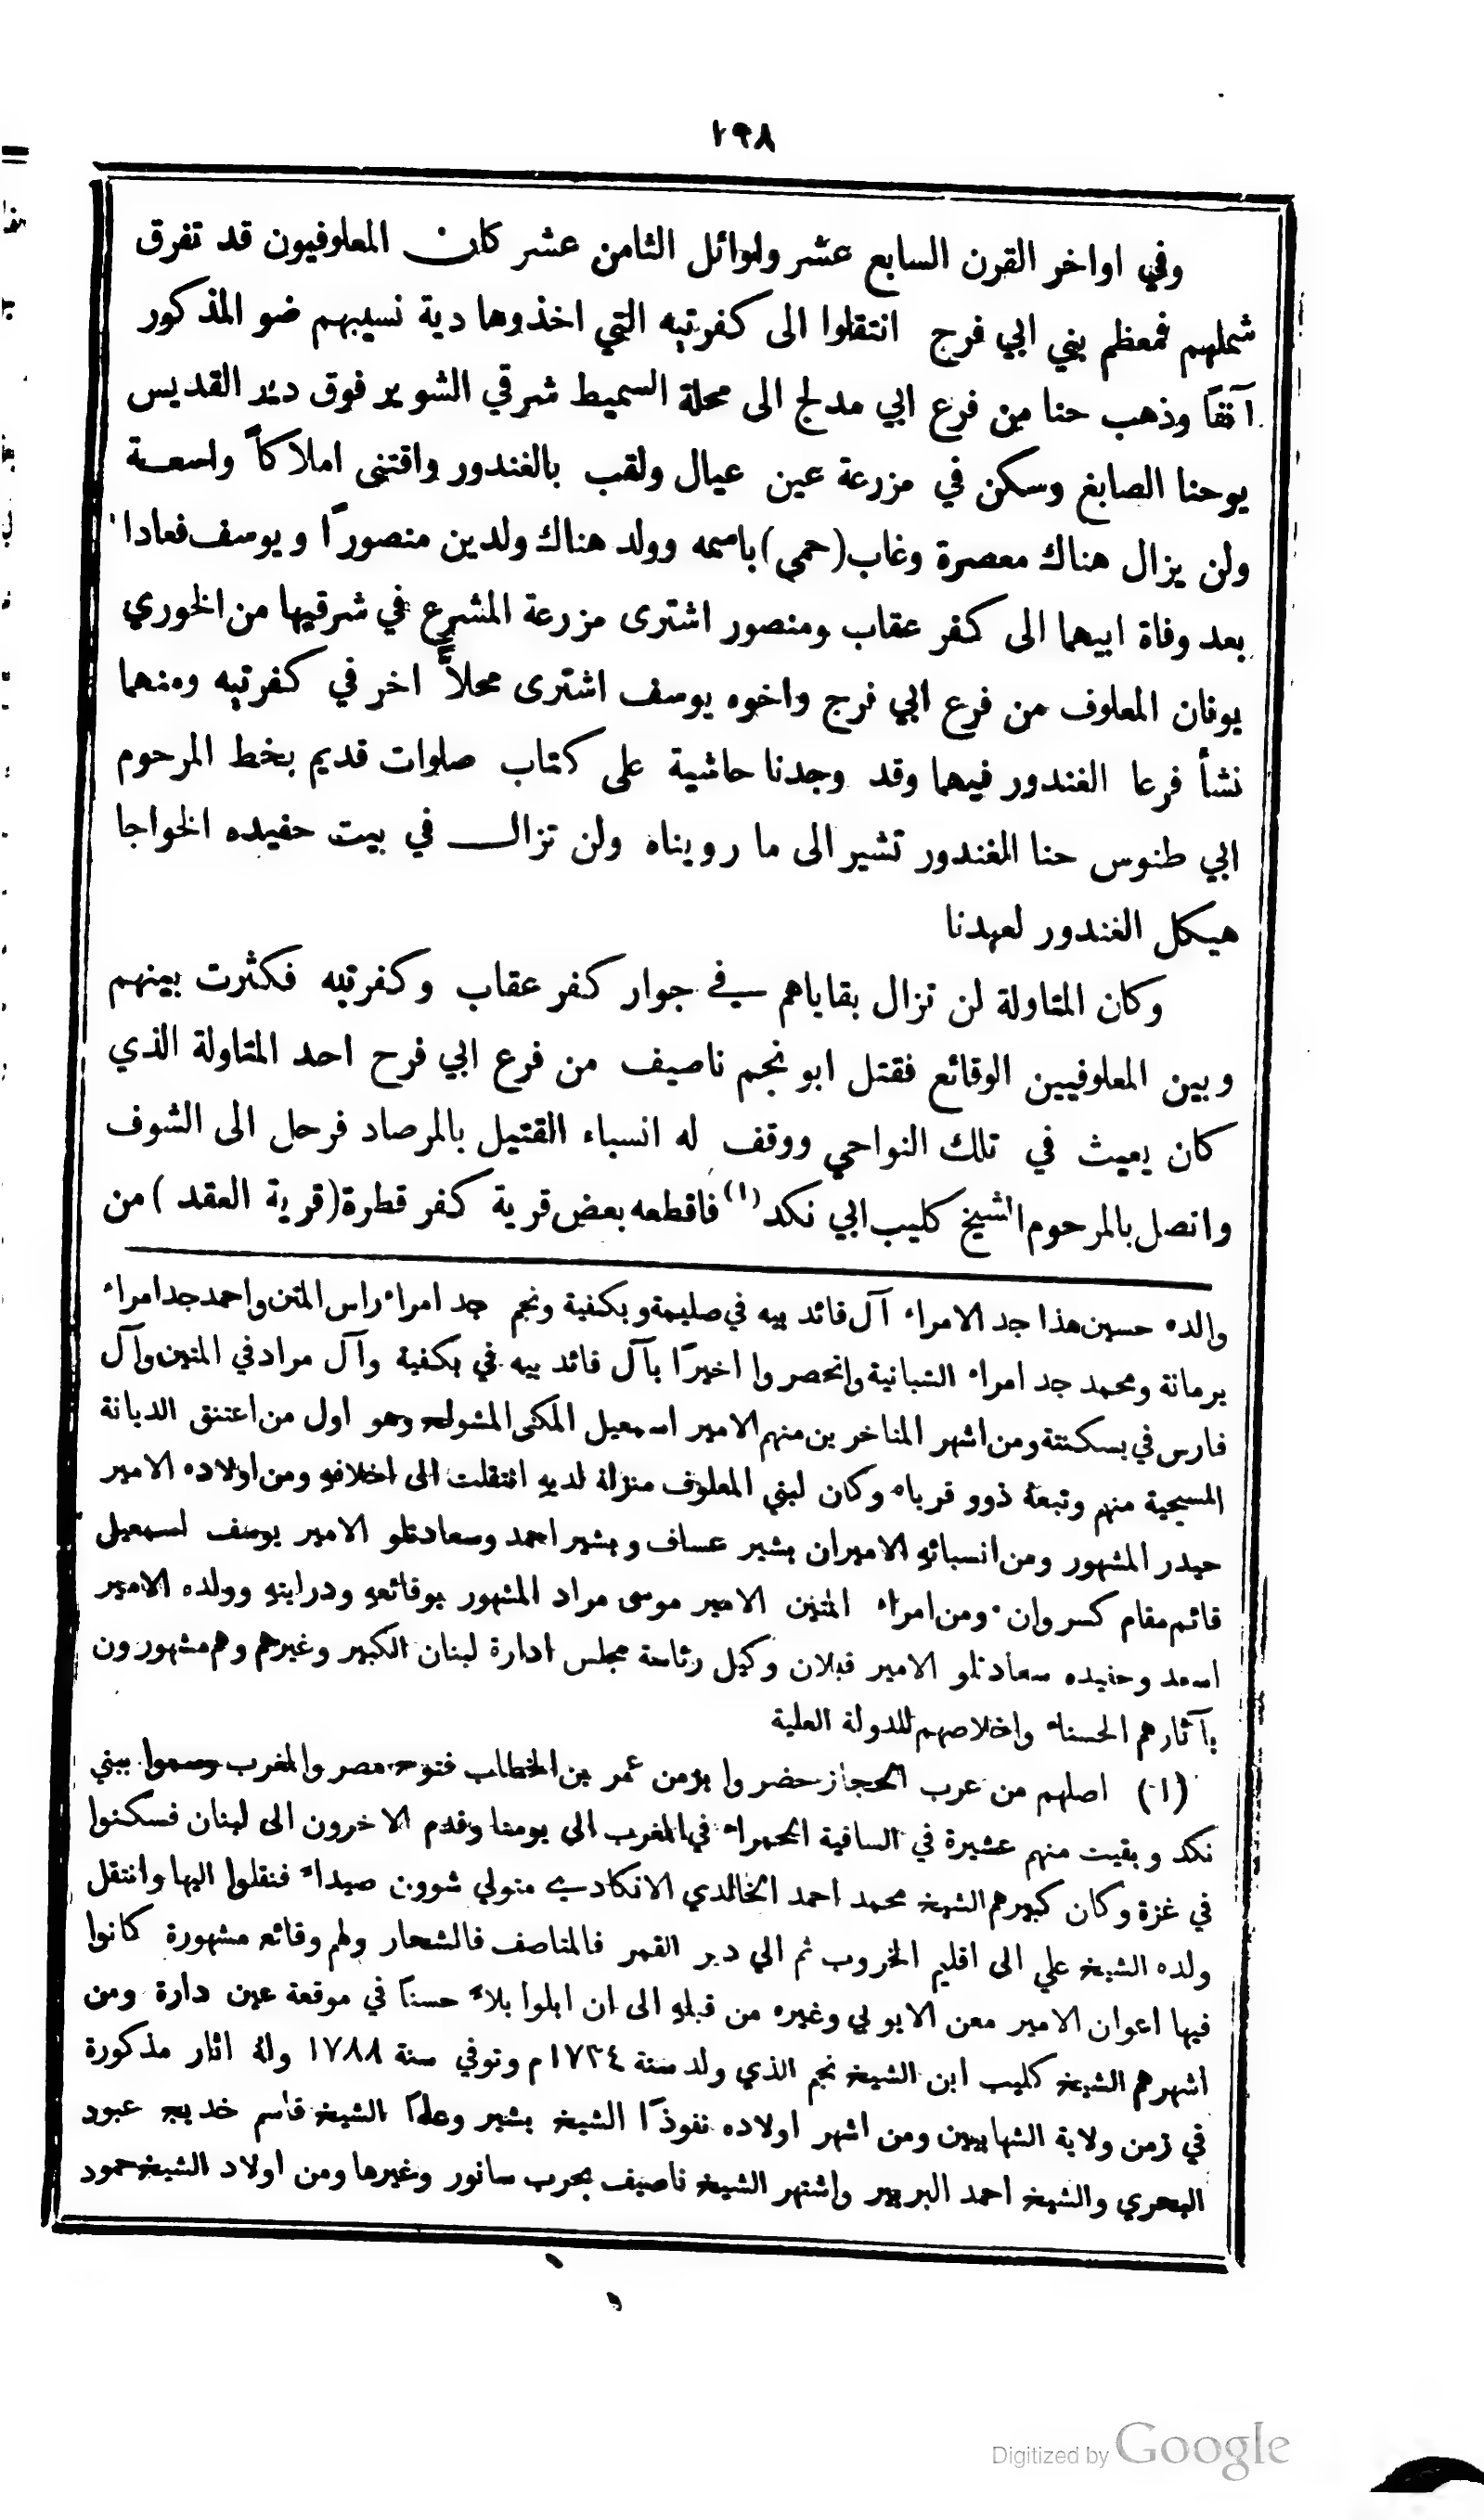 ١٩٨
وفي اواخر القرن السابع عشر واوائل الثامن عشر كان المعلوفيون قد تفرق
شملهم فمعظم بني ابي فرح انتقلوا الى كفرتيه التي اخذوها دية نسيبهم ضو المذكور
آنفًا وذهب حنا من فرع ابي مدلج الى محلة السميط شرقي الشوير فوق دير القديس
يوحنا الصابغ وسكن في مزرعة عين عيال ولقب بالغندور واقتنى املاكًا واسعة
ولن يزال هناك معصرة وغاب (حمى) باسمه وولد هناك ولدين منصورًا ويوسف فعادا
بعد وفاة ابيهما الى كفر عقاب ومنصور اشترى مزرعة المشرع في شرقيها من الخوري
يونان المعلوف من فرع ابي فرح واخوه يوسف اشترى محلاًّ اخر في كفرتيه ومنهما
نشأ فرعا الغندور فيهما وقد وجدنا حاشية على كتاب صلوات قديم بخط المرحوم
ابي طنوس حنا الغندور تشير الى ما رويناه ولن تزال في بيت حفيده الخواجا
هيكل الغندور لعهدنا
وكان المتاولة لن تزال بقاياهم في جوار كفر عقاب وكفرتيه فكثرت بينهم
وبين المعلوفيين الوقائع فقتل ابو نجم ناصيف من فرع ابي فرح احد المتاولة الذي
كان يعيث في تلك النواحي ووقف له انسباء القتيل بالمرصاد فرحل الى الشوف
واتصل بالمرحوم الشيخ كليب ابي نكد (١) فاقطعه بعض قرية كفر قطرة (قرية العقد) من
والده حسين هذا جد الامراء آل قائد بيه في صليمة وبكفية ونجم جد امراء راس المتن واحمد جد امراء
برمانة ومحمد جد امراء الشبانية وانحصروا اخيرًا بآل قائد بيه في بكفية وآل مراد في المتين وآل
فارس في بسكنتة ومن اشهر المتاخرين منهم الامير اسمعيل المكنى المشولح وهو اول من اعتنق الديانة
المسيحية منهم وتبعهُ ذوو قرباه وكان لبني المعلوف منزلة لديهِ انتقلت الى اخلافهِ ومن اولاده الامير
حيدر المشهور ومن انسبائهِ الاميران بشير عساف وبشير احمد وسعادتلو الامير يوسف اسمعيل
قائم مقام كسروان ومن امراء المتين الامير موسى مراد المشهور بوقائعهِ ودرايتهِ وولده الامير
اسعد وحفيده سعادتلو الامير قبلان وكيل رئاسة مجلس ادارة لبنان الكبير وغيرهم وهم مشهورون
بآثارهم الحسناء واخلاصهم للدولة العلية
(١) اصلهم من عرب الحجاز حضروا بزمن عمر بن الخطاب فتوح مصر والمغرب وسموا ببني
نكد وبقيت منهم عشيرة في الساقية الحمراء في المغرب الى يومنا وقدم الاخرون الى لبنان فسكنوا
في غزة وكان كبيرهم الشيخ محمد احمد الخالدي الانكادي متولي شوون صيداء فنقلوا اليها وانتقل
ولده الشيخ علي الى اقليم الخروب ثم الى دير القمر فالمناصف فالشحار ولهم وقائع مشهورة كانوا
فيها اعوان الامير معن الايوبي وغيره من قبلهِ الى ان ابلوا بلاءً حسنًا في موقعة عين دارة ومن
اشهرهم الشيخ كليب ابن الشيخ نجم الذي ولد سنة ١٧٢٤م وتوفي سنة ١٧٨٨ ولهُ اثار مذكورة
في زمن ولاية الشهابيين ومن اشهر اولاده نفوذًا الشيخ بشير وعلمًا الشيخ قاسم خديج عبود
البحري والشيخ احمد البربير واشتهر الشيخ ناصيف بحرب سانور وغيرها ومن اولاد الشيخ حمود
Digitized by Google